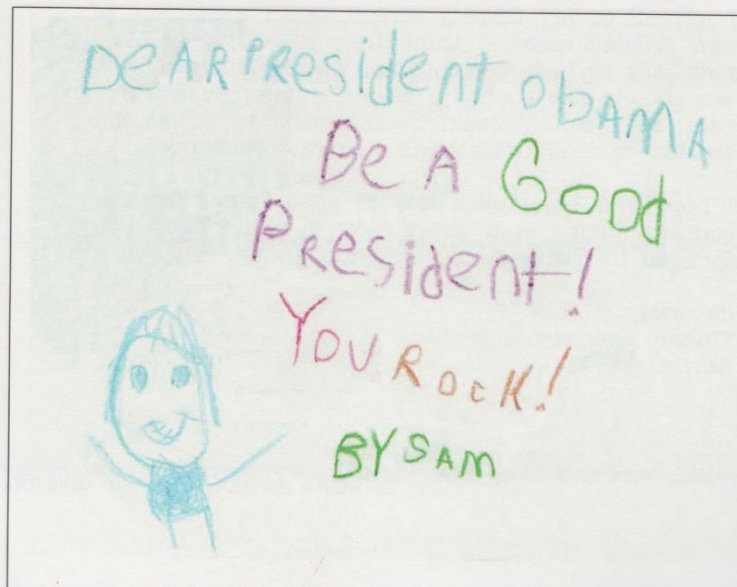 DeAR PResident obAMA
Be A Good
PResident!
YOU ROcK!
BY SAM